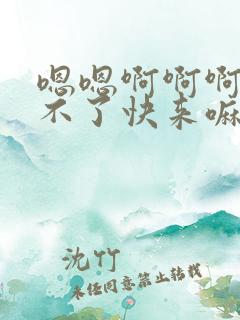 嗯嗯啊啊啊
不了快来嘛
沈竹
未经同意禁止转载